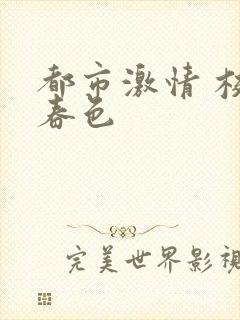 都市激情 校
春色
完美世界影视